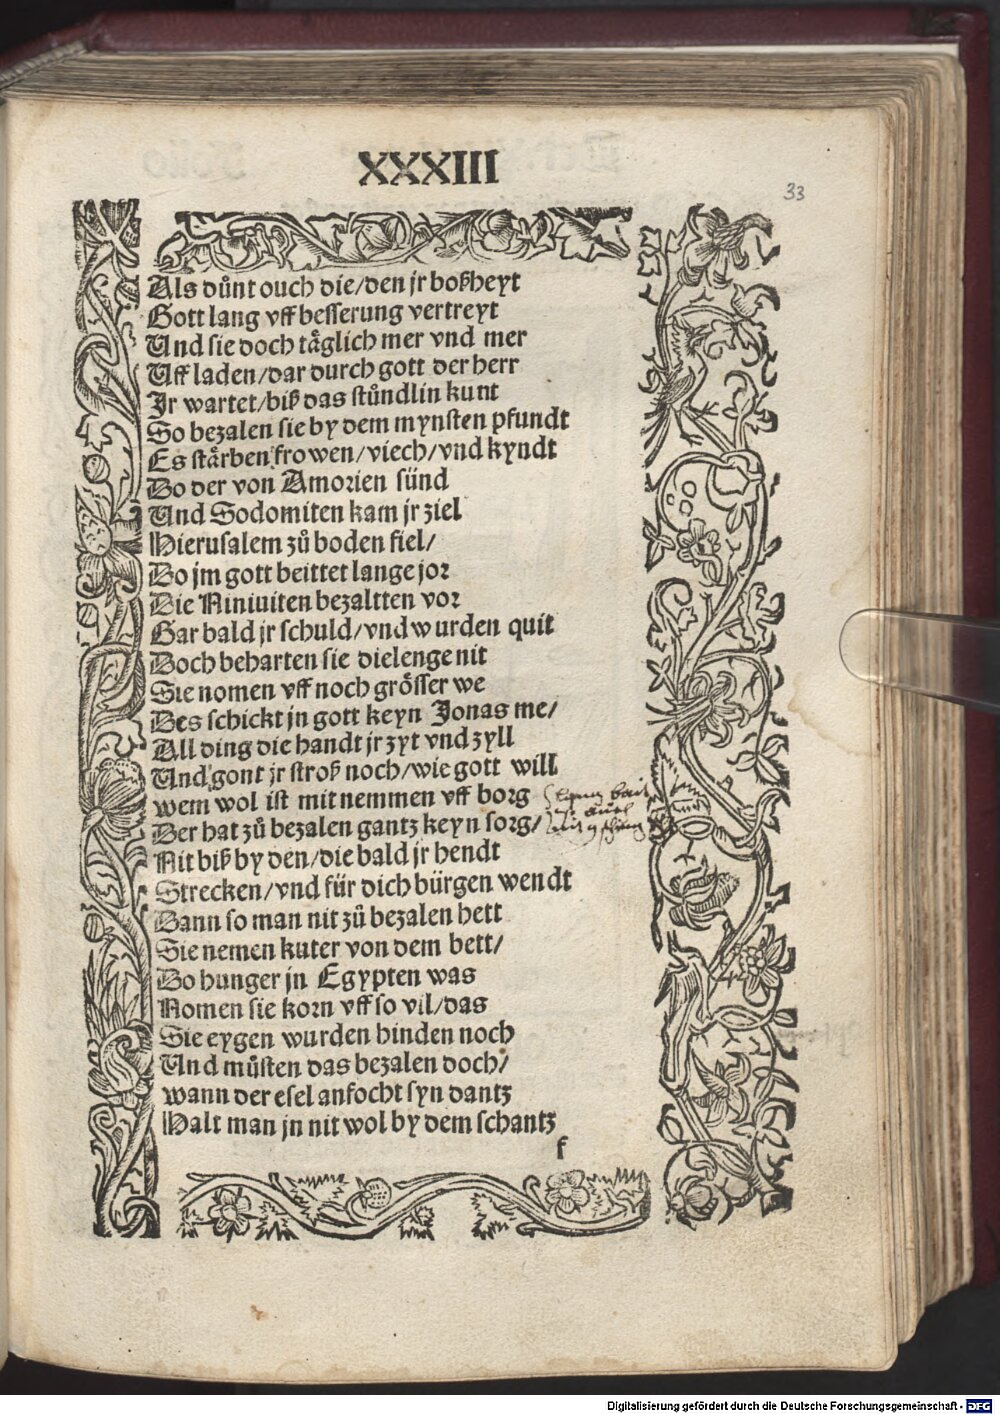 XXXIII
33
Als důnt ouch die/den jr boßheyt
Gott lang vff besserung vertreyt
Und sie doch täglich mer vnd mer
Uff laden/dar durch gott der herr
Jr wartet/biß das stůndlin kunt
So bezalen sie by dem mynsten pfundt
Es stärben frowen/viech/vnd kyndt
Do der von Amorien sünd
Und Sodomiten kam jr ziel
Hierusalem zů boden fiel/
Do jm gott beittet lange jor
Die Niniuiten bezaltten vor
Gar bald jr schuld/vnd wurden quit
Doch beharten sie die lenge nit
Sie nomen vff noch grösser we
Des schickt jn gott keyn Jonas me/
All ding die handt jr zyt vnd zyll
Und gont jr stroß noch/wie gott will
wem wol ist mit nemmen vff borg
Der hat zů bezalen gantz keyn sorg/
Nit biß by den/die bald jr hendt
Strecken/vnd für dich bürgen wendt
Dann so man nit zů bezalen hett
Sie nemen kuter von dem bett/
Do hunger jn Egypten was
Nomen sie korn vff so vil/das
Sie eygen wurden hinden noch
Und můsten das bezalen doch/
wann der esel anfocht syn dantz
Halt man jn nit wol by dem schantz
f
Digitalisierung gefördert durch die Deutsche Forschungsgemeinschaft - DFG